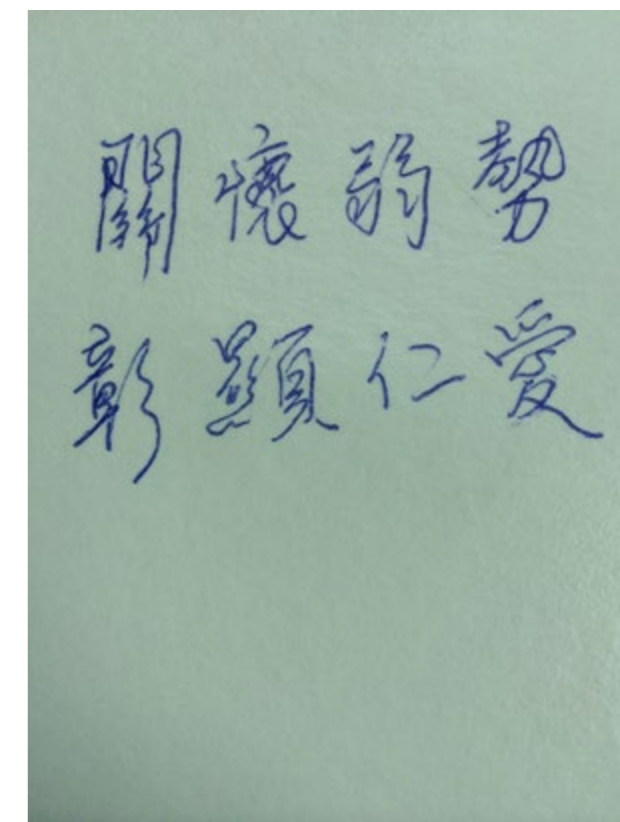 關懷弱勢
彰顯仁愛